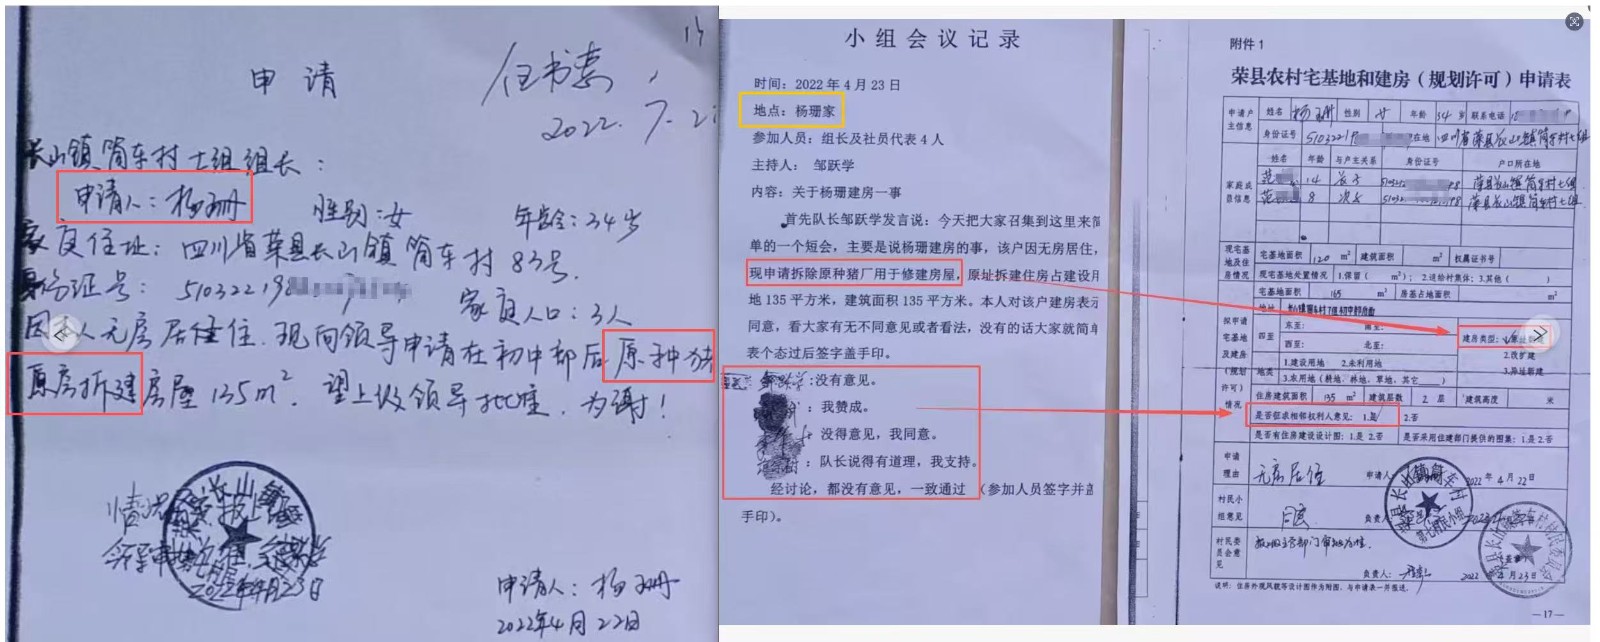 申请
任书素，
2022.7.2
长山镇筒车村七组组长：
申请人：杨珊 性别：女 年龄：34岁
家庭住址：四川省荣县长山镇筒车村83号.
身份证号：51032219 家庭人口：3人
因本人无房居住.现向领导申请在初中部后原种猪
原房拆建房屋135m².望上级领导批准.为谢！
长山镇
2022年4月23日
申请人：杨珊
2022年4月22日
小组会议记录
时间：2022年4月23日
地点：杨珊家
参加人员：组长及社员代表4人
主持人：邹跃学
内容：关于杨珊建房一事
首先队长邹跃学发言说：今天把大家召集到这里来简
单的一个短会，主要是说杨珊建房的事，该户因无房居住，
现申请拆除原种猪厂用于修建房屋，原址拆建住房占建设用
地135平方米，建筑面积135平方米。本人对该户建房表示
同意，看大家有无不同意见或者看法，没有的话大家就简单
表个态过后签字盖手印。
：没有意见。
：我赞成。
：没得意见，我同意。
：队长说得有道理，我支持。
经讨论，都没有意见，一致通过（参加人员签字并盖
手印）。
附件1
荣县农村宅基地和建房（规划许可）申请表
申请户主信息 姓名 杨珊 性别 女 年龄 34岁 联系电话 1
身份证号 5103221 户口所在地 四川省荣县长山镇筒车村七组
家庭成员信息 姓名 年龄 与户主关系 身份证号 户口所在地
范 14 长子 荣县长山镇筒车村七组
范 8 次子 荣县长山镇筒车村七组
现宅基地及住房情况 宅基地面积 120 m² 建筑面积 m² 权属证书号
现宅基地处置情况 1.保留（ m²）；2.退给村集体；3.其他（ ）
拟申请宅基地及建房（规划许可）情况 宅基地面积 165 m² 房基占地面积 m²
地址
四至 东至： 南至： 建房类型：1.原址翻建
西至： 北至： 2.改扩建
地类 1.建设用地 2.未利用地 3.异址新建
3.农用地（耕地、林地、草地、其它____）
住房建筑面积 135 m² 建筑层数 2 层 建筑高度 米
是否征求相邻权利人意见：1.是 2.否
是否有住房建设设计图：1.是 2.否 是否采用住建部门提供的图集：1.是 2.否
申请理由 无房居住 申请人： 2022年4月22日
村民小组意见 同意 负责人：
村民委员会意见
负责人： 2022 年4月23日
说明：住房外观风貌等设计图作为附图，与申请表一并报送。
— 17 —